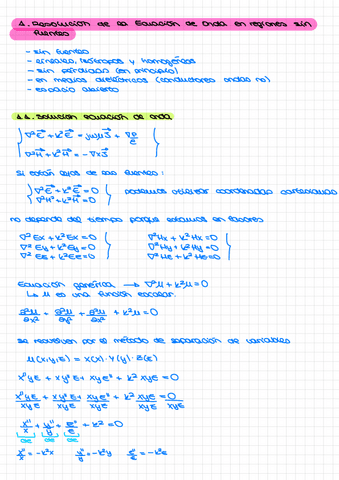 1. Resolución de la Ecuación de Onda en regiones sin
fuentes
- sin fuentes
- lineales, isótropos y homogéneos
- sin pérdidas (en principio)
- en medios dieléctricos (conductores ondas no)
- espacio abierto
1.1. Solución ecuación de onda
∇²E + k²E = jωμJ + ∇ρ/ε
∇²H + k²H = -∇xJ
Si están lejos de las fuentes:
∇²E + k²E = 0
∇²H + k²H = 0
podemos utilizar coordenadas cartesianas
no depende del tiempo porque estamos en fasores
∇²Ex + k²Ex = 0 ∇²Hx + k²Hx = 0
∇²Ey + k²Ey = 0 ∇²Hy + k²Hy = 0
∇²Ez + k²Ez = 0 ∇²Hz + k²Hz = 0
Ecuación genérica → ∇²μ + k²μ = 0
↳ μ es una función escalar.
∂²μ/∂x² + ∂²μ/∂y² + ∂²μ/∂z² + k²μ = 0
se resuelven por el método de separación de variables
μ(x,y,z) = X(x)·Y(y)·Z(z)
X''YZ + XY''Z + XYZ'' + k² XYZ = 0
X''YZ/XYZ + XY''Z/XYZ + XYZ''/XYZ + k² XYZ/XYZ = 0/XYZ
X''/X + Y''/Y + Z''/Z + k² = 0
cte cte cte
X''/X = -k²x Y''/Y = -k²y Z''/Z = -k²z